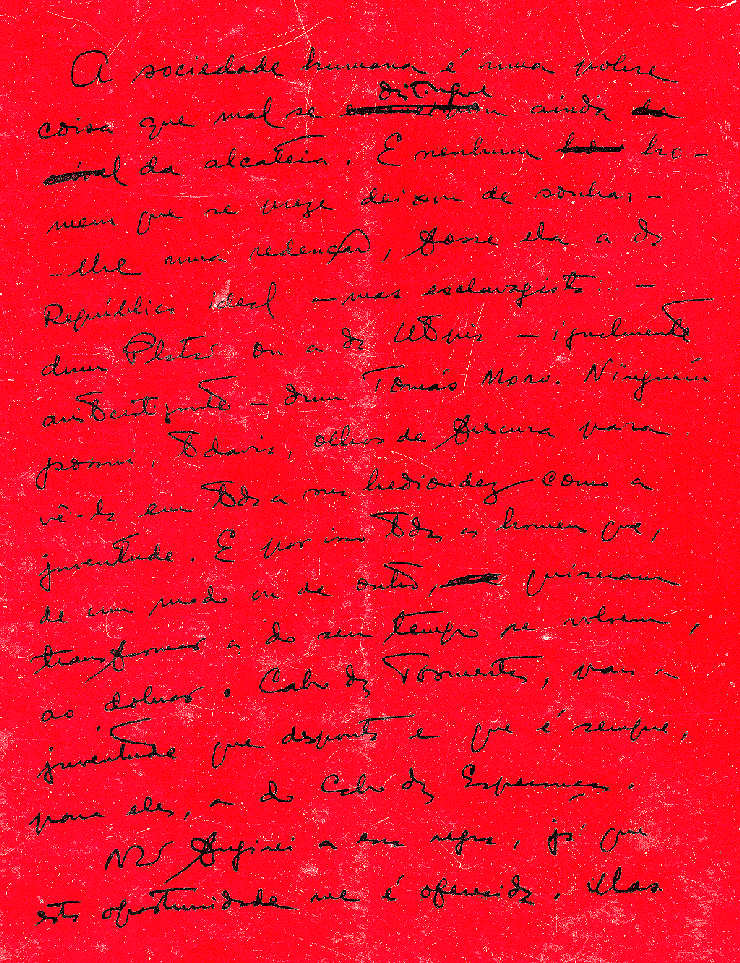 A sociedade humana é uma pobre
coisa que mal se distingue ainda
da alcateia. E nenhum ho-
mem que se preze deixou de sonhar-
-lhe uma redenção, fosse ela a da
República ideal – mas esclavagista –
dum Platão ou a da Utopia – igualmente
– dum Tomás Moro. Ninguém
possui, todavia, olhos de frescura para
vê-la em toda a sua hediondez como a
juventude. E por isso todos os homens que,
de um modo ou de outro, quiseram
transformar a do seu tempo se voltam,
ao dobrar o Cabo das Tormentas, para a
juventude que desponta e que é sempre,
para eles, a do Cabo da Esperança.
Não fugirei a essa regra, já que
esta oportunidade me é oferecida. Mas